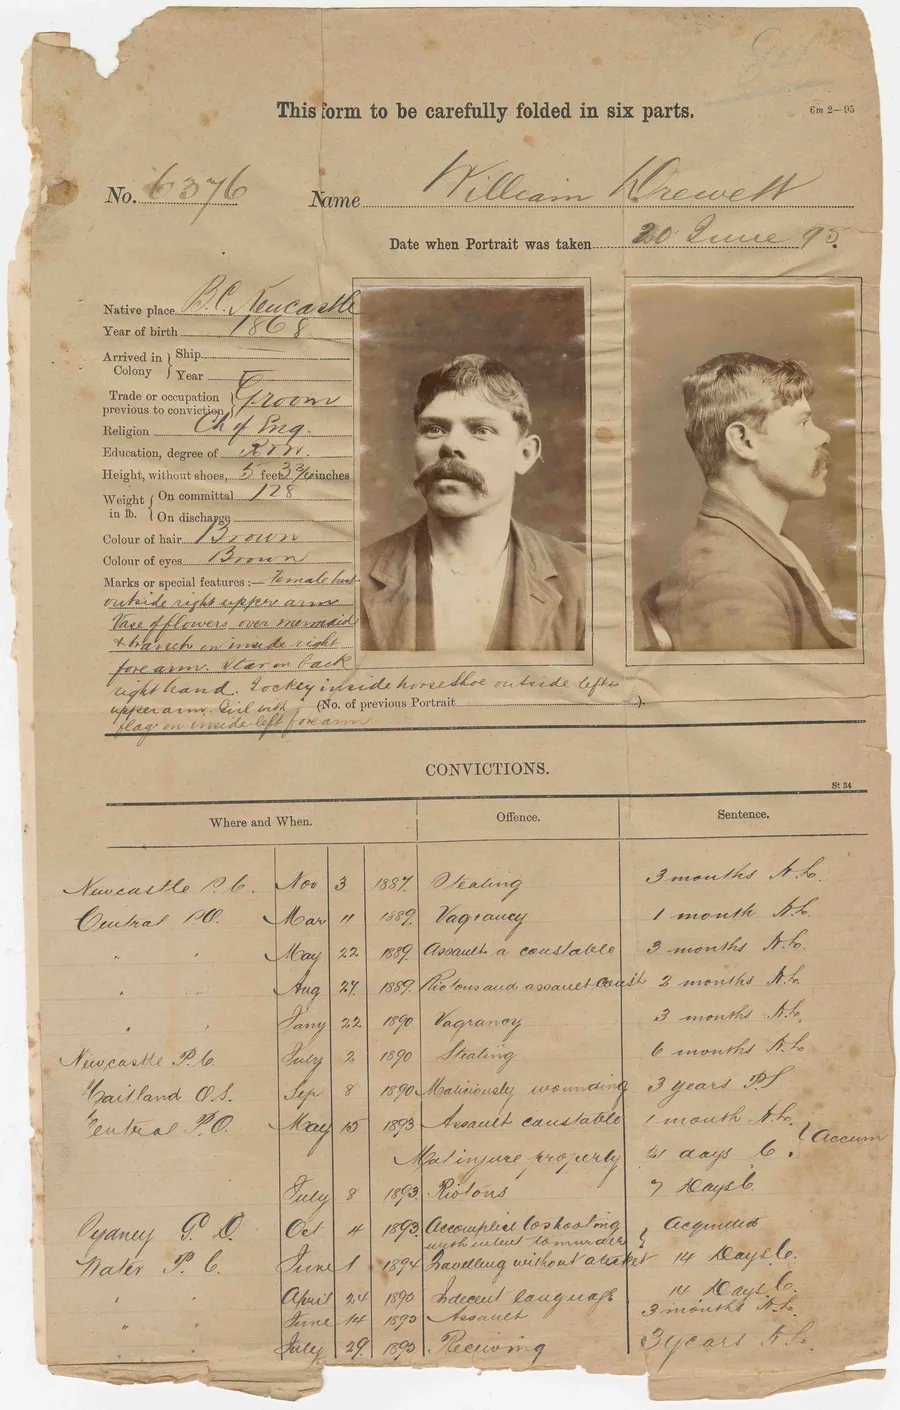 This form to be carefully folded in six parts.
6m 2—95
No. 6376 Name William Drewett
Date when Portrait was taken 20 June 95.
Native place B.C. Newcastle
Year of birth 1868
Arrived in Colony { Ship
Year
Trade or occupation previous to conviction } Groom
Religion Ch of Eng.
Education, degree of R & W.
Height, without shoes, 5 feet 3 3/4 inches
Weight in lb. { On committal 128
On discharge
Colour of hair Brown
Colour of eyes Brown
Marks or special features :— Female bust
outside right upper arm
Vase of flowers over mermaid
& branch on inside right
forearm. Star on back
right hand. Jockey inside horseshoe outside left
upper arm. Girl with
flag on inside left forearm
(No. of previous Portrait ).
CONVICTIONS.
St 34
Where and When. Offence. Sentence.
Newcastle P.C. Nov 3 1887 Stealing 3 months H.L.
Central P.O. Mar 11 1889. Vagrancy 1 month H.L.
" " May 22 1889. Assault a constable 3 months H.L.
" Aug 27. 1889. Riotous and assault Const 2 months H.L.
" " Jany 22 1890 Vagrancy 3 months H.L.
Newcastle P.C. July 2 1890 Stealing 6 months H.L.
Maitland Q.S. Sep 8 1890 Maliciously wounding 3 years P.S
Central P.O. May 15 1893 Assault constable 1 month H.L. } Accum
Mal injure property 21 days C.
July 8 1893. Riotous 7 Days C.
Sydney G. D. Oct 4 1893. Accomplice to shooting } Acquitted
with intent to murder
Water P. C. June 1 1894 Travelling without a ticket 14 Days C.
" " April 24 1895 Indecent language 14 Days C.
" " June 14 1895 Assault 3 months H.L.
July 29. 1895 Receiving 3 years H.L.